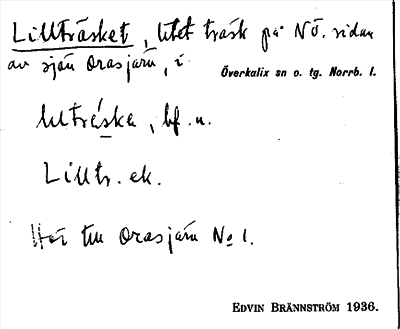 Lillträsket, litet träsk på NÖ. sidan
av sjön Orasjärv, i
Överkalix sn o. tg. Norrb. l.
lıllträ́ska, bf. n.
Lilltr. ek.
Hör till Orasjärv No 1.
EDVIN BRÄNNSTRÖM 1936.